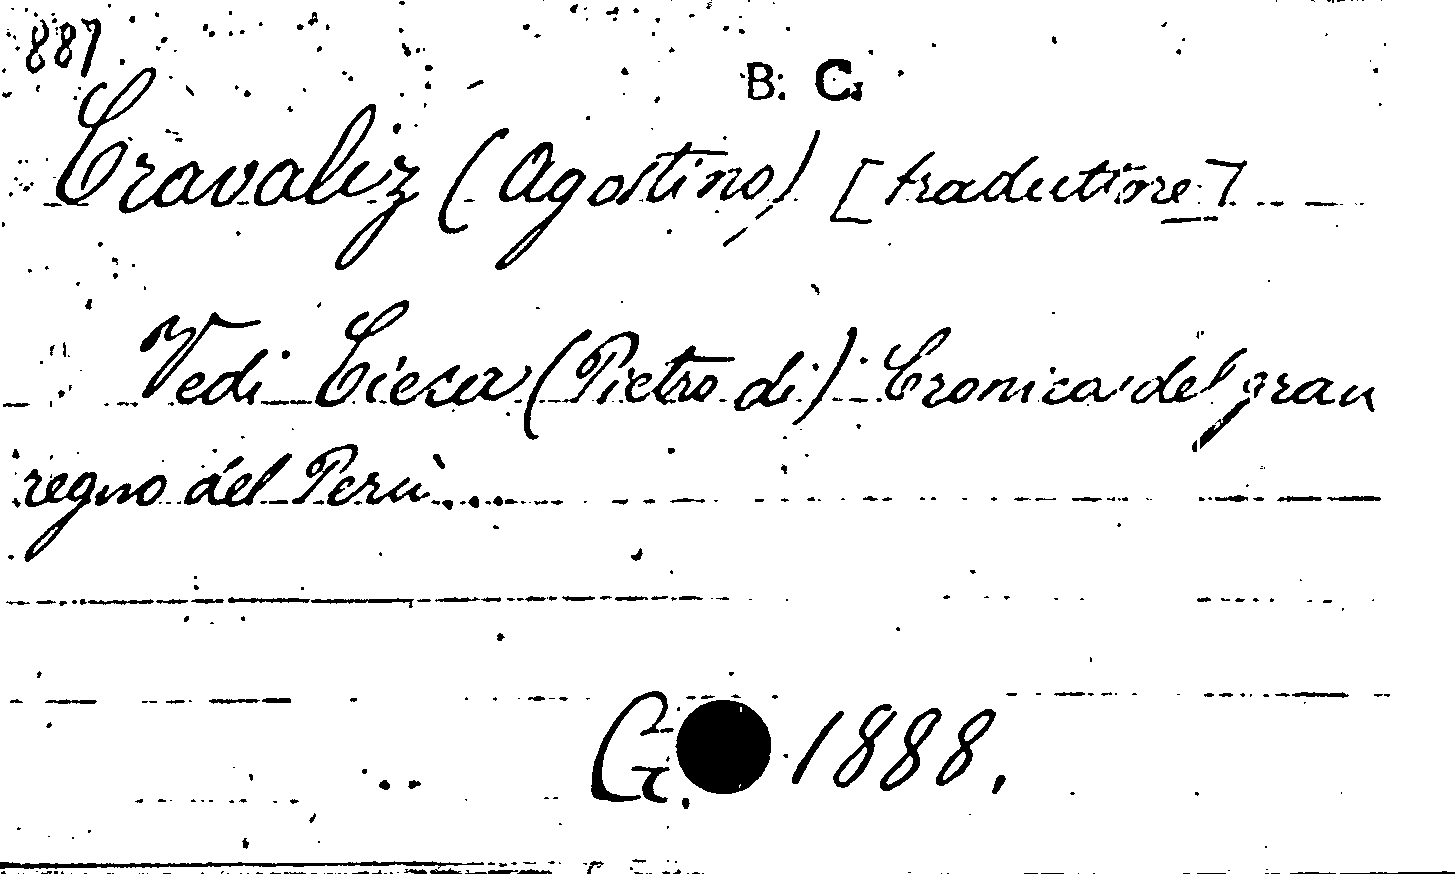 887
B. C.
Cravaliz (Agostino) [traduttore]
Vedi Cieca (Pietro di) Cronica del gran
regno del Perù...
G. 1888.